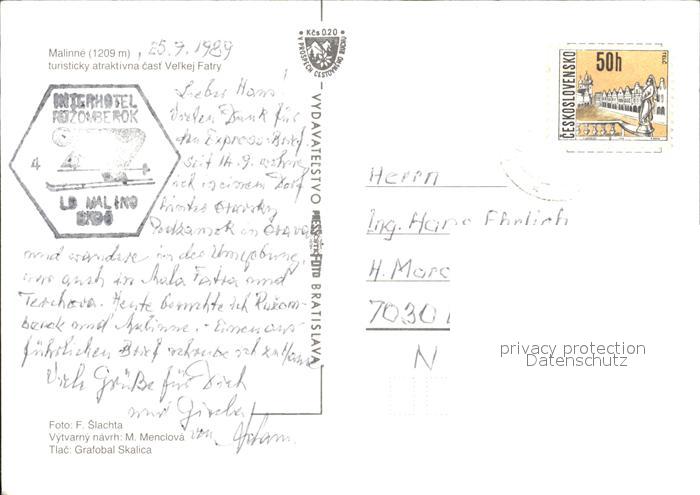 Malinné (1209 m) , 25.9.1989
turisticky atraktívna časť Veľkej Fatry
Kčs 0.20
V PROSPECH CESTOVNÉHO RUCHU
ČESKOSLOVENSKO
50h
TELČ
INTERHOTEL
RUŽOMBEROK
4
LD MALINO
BRDO
VYDAVATEĽSTVO PRESSFOTO BRATISLAVA
Lieber Hans!
Vielen Dank für
den Express-Brief.
Seit 14.9. wohne
ich in einem Dorf
Oravský
Podzámok in Orava
und wandere in der Umgebung,
nun auch in Mala Fatra und
Terchova. Heute besuchte ich Ružom-
berok und Malinne. - Einen aus-
führlichen Brief schreibe ich zu Hause
Viele Grüße für Dich
und Gisela
von
Herrn
Ing. Hans Ehrlich
H. Marc
70301
N
privacy protection
Datenschutz
Foto: F. Šlachta
Výtvarný návrh: M. Menclová
Tlač: Grafobal Skalica